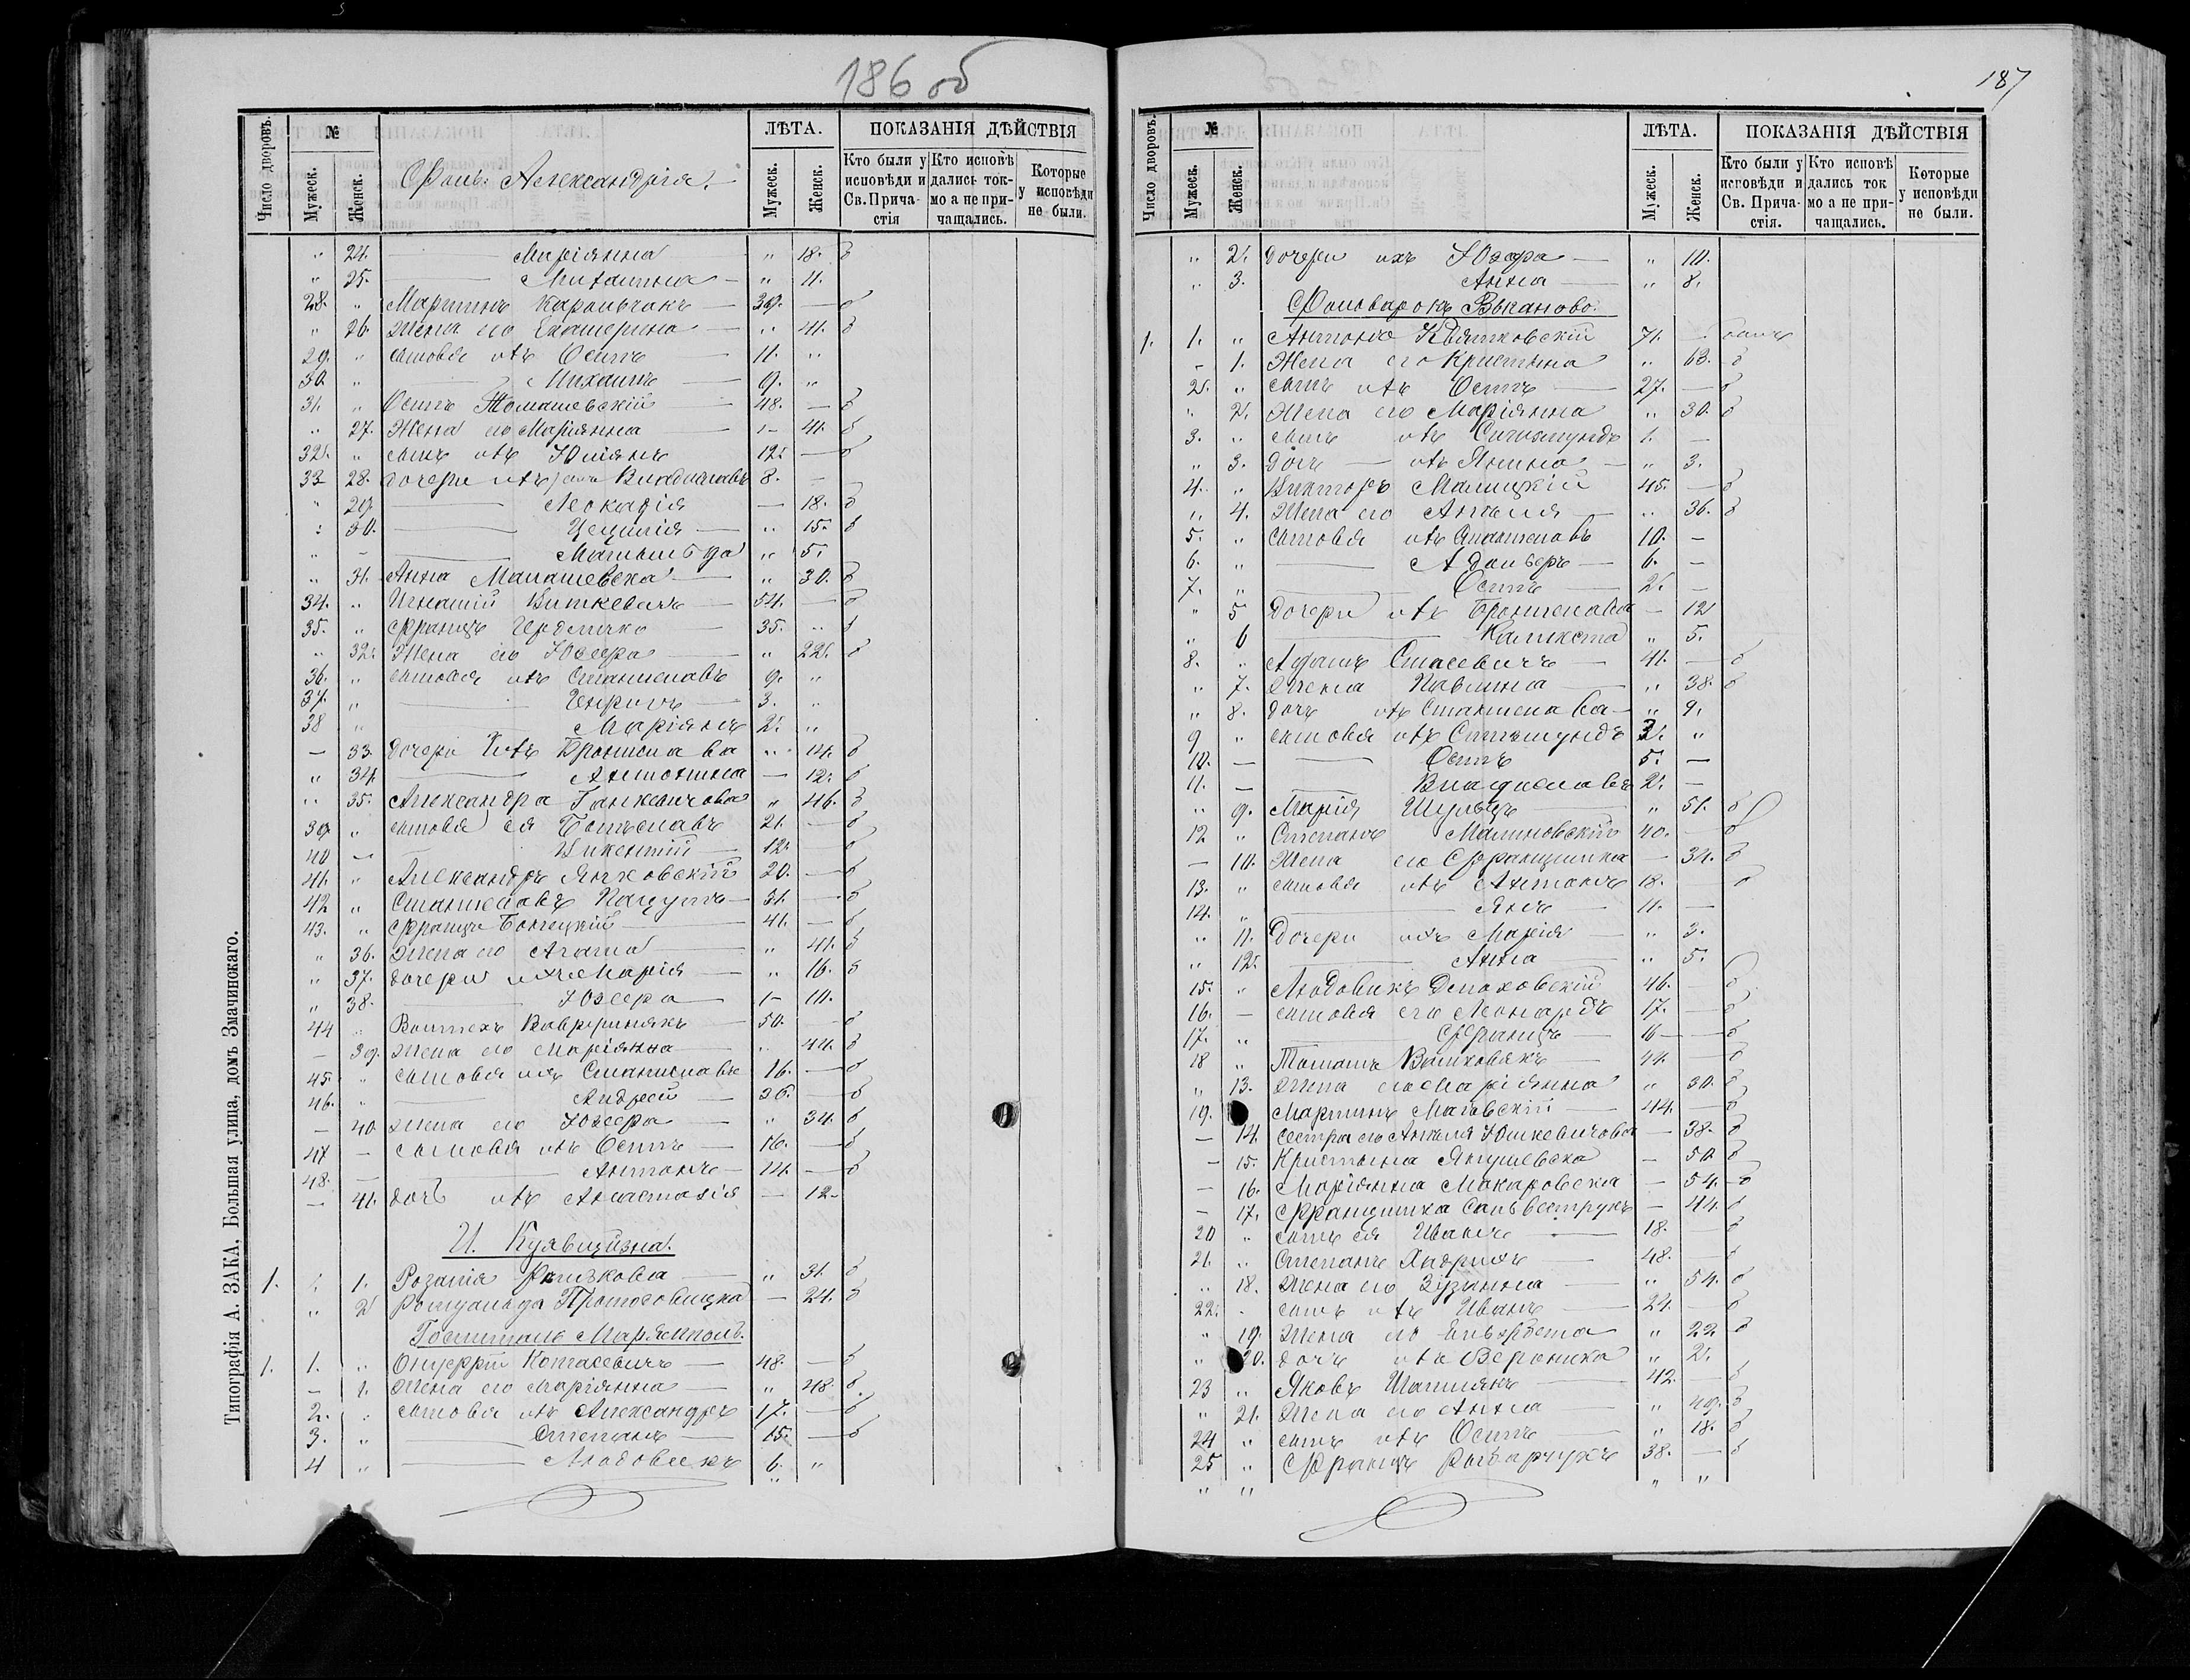 186 об
Число дворовъ. № ЛѢТА. ПОКАЗАНІЯ ДѢЙСТВІЯ
Мужеск. Женск. Фоль. Александрія. Мужеск. Женск. Кто были у исповѣди и Св. Причастія Кто исповѣдались токмо а не причащались. Которые у исповѣди не были.
" 24. — Маріянна " 18. б
" 25. — Михалина — " 11.
28. " Мартинъ Карольчакъ — 39. — б
" 26. Жена его Екатерина — " 41. б
29. " сыновья ихъ Осипъ — 11. "
30. " — Михаилъ — 9. "
31. " Осипъ Томашевскій — 48. — б
" 27. Жена его Маріянна — 41. б
32. " сынъ ихъ Юліянъ 12. — б
33 28. дочери ихъ Владиславъ 8. —
" 29. — Леокадія — 18. б
" 30. — Цецилія — " 15. б
" — Матильда " 5.
" 31. Анна Малашевска — " 30. б
34. " Игнатій Виткевичъ — 54. — б
35. " Францъ — 35. " б
" 32. Жена его Юзефа " 22. б
36. " сыновья ихъ Станиславъ 9. "
37. " — Генрихъ — 3. "
38 " — Маріянъ 2. "
— 33. дочери ихъ Брониславa " 14. б
" 34. — Антонина — 12. б
" 35. Александра Ганкевичова " 46. б
39. " сыновья ея Болеславъ 21. — б
40 — Викентій 12. — б
41. " Александръ Янковскій 20. — б
42 " Станиславъ — 31. — б
43. " Францъ — 41. — б
" 36. Жена его Агата " 41. б
" 37. дочери ихъ Марія — " 16. б
" 38. — Юзефа — 10.
44 " Войтехъ Вавриннякъ 50. — б
— 39. жена его Маріянна " 44. б
45. " сыновья ихъ Станиславъ 16. — б
46. " — Андрей — 36. — б
— 40. жена его Юзефа — " 34. б
47 — сыновья ихъ Осипъ — 16. — б
48. — — Антонъ — 14. — б
— 41. дочь ихъ Анастазія — 12.
И. Куявщизна.
1. " 1. Розалія — " 31. б
" 2 Ромуальда — 24. б
Госпиталь Маріямполь.
1. 1. " Онуфрій Котасевичъ — 48. — б
— 1. жена его Маріянна — " 48. б
2. " сыновья ихъ Александръ 17. — б
3. " — Степанъ — 15. — б
4 " — Людовикъ 6. "
Типографія А. ЗАКА, Большая улица, домъ Значинскаго.
187
Число дворовъ. № ЛѢТА. ПОКАЗАНІЯ ДѢЙСТВІЯ
Мужеск. Женск. Мужеск. Женск. Кто были у исповѣди и Св. Причастія. Кто исповѣдались ток мо а не причащались. Которые у исповѣди не были.
" 2. дочери ихъ Юзефа — " 10.
" 3. Анна — " 8.
Фольварокъ
1. 1. " Антоній Квятковскій 71. —
— 1. Жена его Кристына " 63. б
2. " сынъ ихъ Осипъ — 27. — б
" 2. Жена его Маріянна " 30. б
3. " сынъ ихъ Сигизмундъ 1. —
" 3. дочь — ихъ Янина — " 3.
4. " Викторъ Малицкій 45. — б
" 4. Жена его Анеля — " 36. б
5. " сыновья ихъ Станиславъ 10. —
6. " — Адольфъ — 6. —
7. " — Осипъ — 2. —
" 5 дочери ихъ Брониславa — 12
" 6 — Каликста " 5.
8. " Адамъ Стасевичъ — 41. — б
" 7. Жена Павлина — " 38. б
" 8. дочь ихъ Станиславa — " 9.
9 " сыновья ихъ Сигизмундъ "
10. — — Осипъ 5. —
11. — — Владиславъ 2. —
" 9. Марія Шульцъ — " 51. б
12 " Степанъ Малиновскій 40. — б
— 10. Жена его Францишка — 34. б
13. " сыновья ихъ Антонъ 18. — б
14. " — Янъ — 11. —
" 11. Дочери ихъ Марія — " 3.
" 12. — Анна — " 5.
15. " Людовикъ 46. — б
16. — сыновья его Леонардъ 17. — б
17. " — Францъ — 16 — б
18 " Томашъ Валковякъ — 44. — б
" 13. Жена его Маріянна " 30. б
19. Мартинъ — 44. — б
— 14. сестра его Анеля Юшкевичова — 38. б
— 15. Кристына Янушевска — 50. б
— 16. Маріянна Макаровска — 54. — б
— 17. Францишка Сильвеструкъ — 44. б
20 " сынъ ея Иванъ — 18. — б
21. " Степанъ — 48. — б
" 18. жена его Зузанна — " 54. б
22. " сынъ ихъ Иванъ — 24. — б
" 19. Жена его Ельжбета " 22. б
" 20. дочь ихъ Вероника " 2.
23 " Яковъ — 42. — б
" 21. Жена его Анна — " 49. б
24 " сынъ ихъ Осипъ — " 18. б
25 " Францъ 38. — б